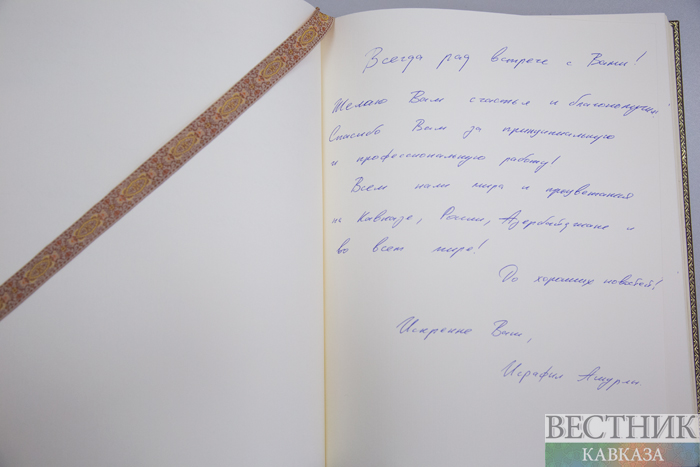 Всегда рад встрече с Вами!
Желаю Вам счастья и благополучия!
Спасибо Вам за принципиальную
и профессиональную работу!
Всем нам мира и процветания
на Кавказе, России, Азербайджане и
во всем мире!
До хороших новостей!
Искренне Ваш,
Исрафил Ашурлы.
ВЕСТНИК
КАВКАЗА